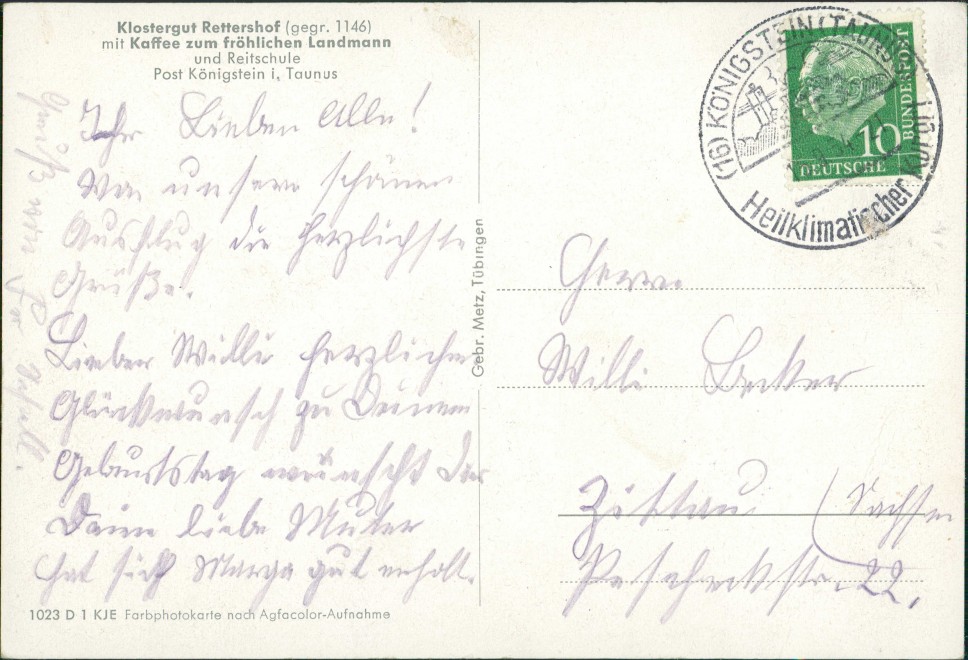 Klostergut Rettershof (gegr. 1146)
mit Kaffee zum fröhlichen Landmann
und Reitschule
Post Königstein i, Taunus
Ihr Lieben Alle!
Von unsern schönen
Ausflug die herzlichste
Grüße.
Lieber Willi herzlichen
Glückwunsch zu Deinem
Geburtstag wünscht Dir
Deine liebe Mutter
hat sich Marga gut erholt.
Gruß von
1023 D 1 KJE Farbphotokarte nach Agfacolor-Aufnahme
Gebr. Metz, Tübingen
(16) KÖNIGSTEIN (TAUNUS)
Heilklimatischer Kurort
10
DEUTSCHE
BUNDESPOST
Herrn
Willi Becker
Zittau (Sachsen
Pescheckstr. 22.